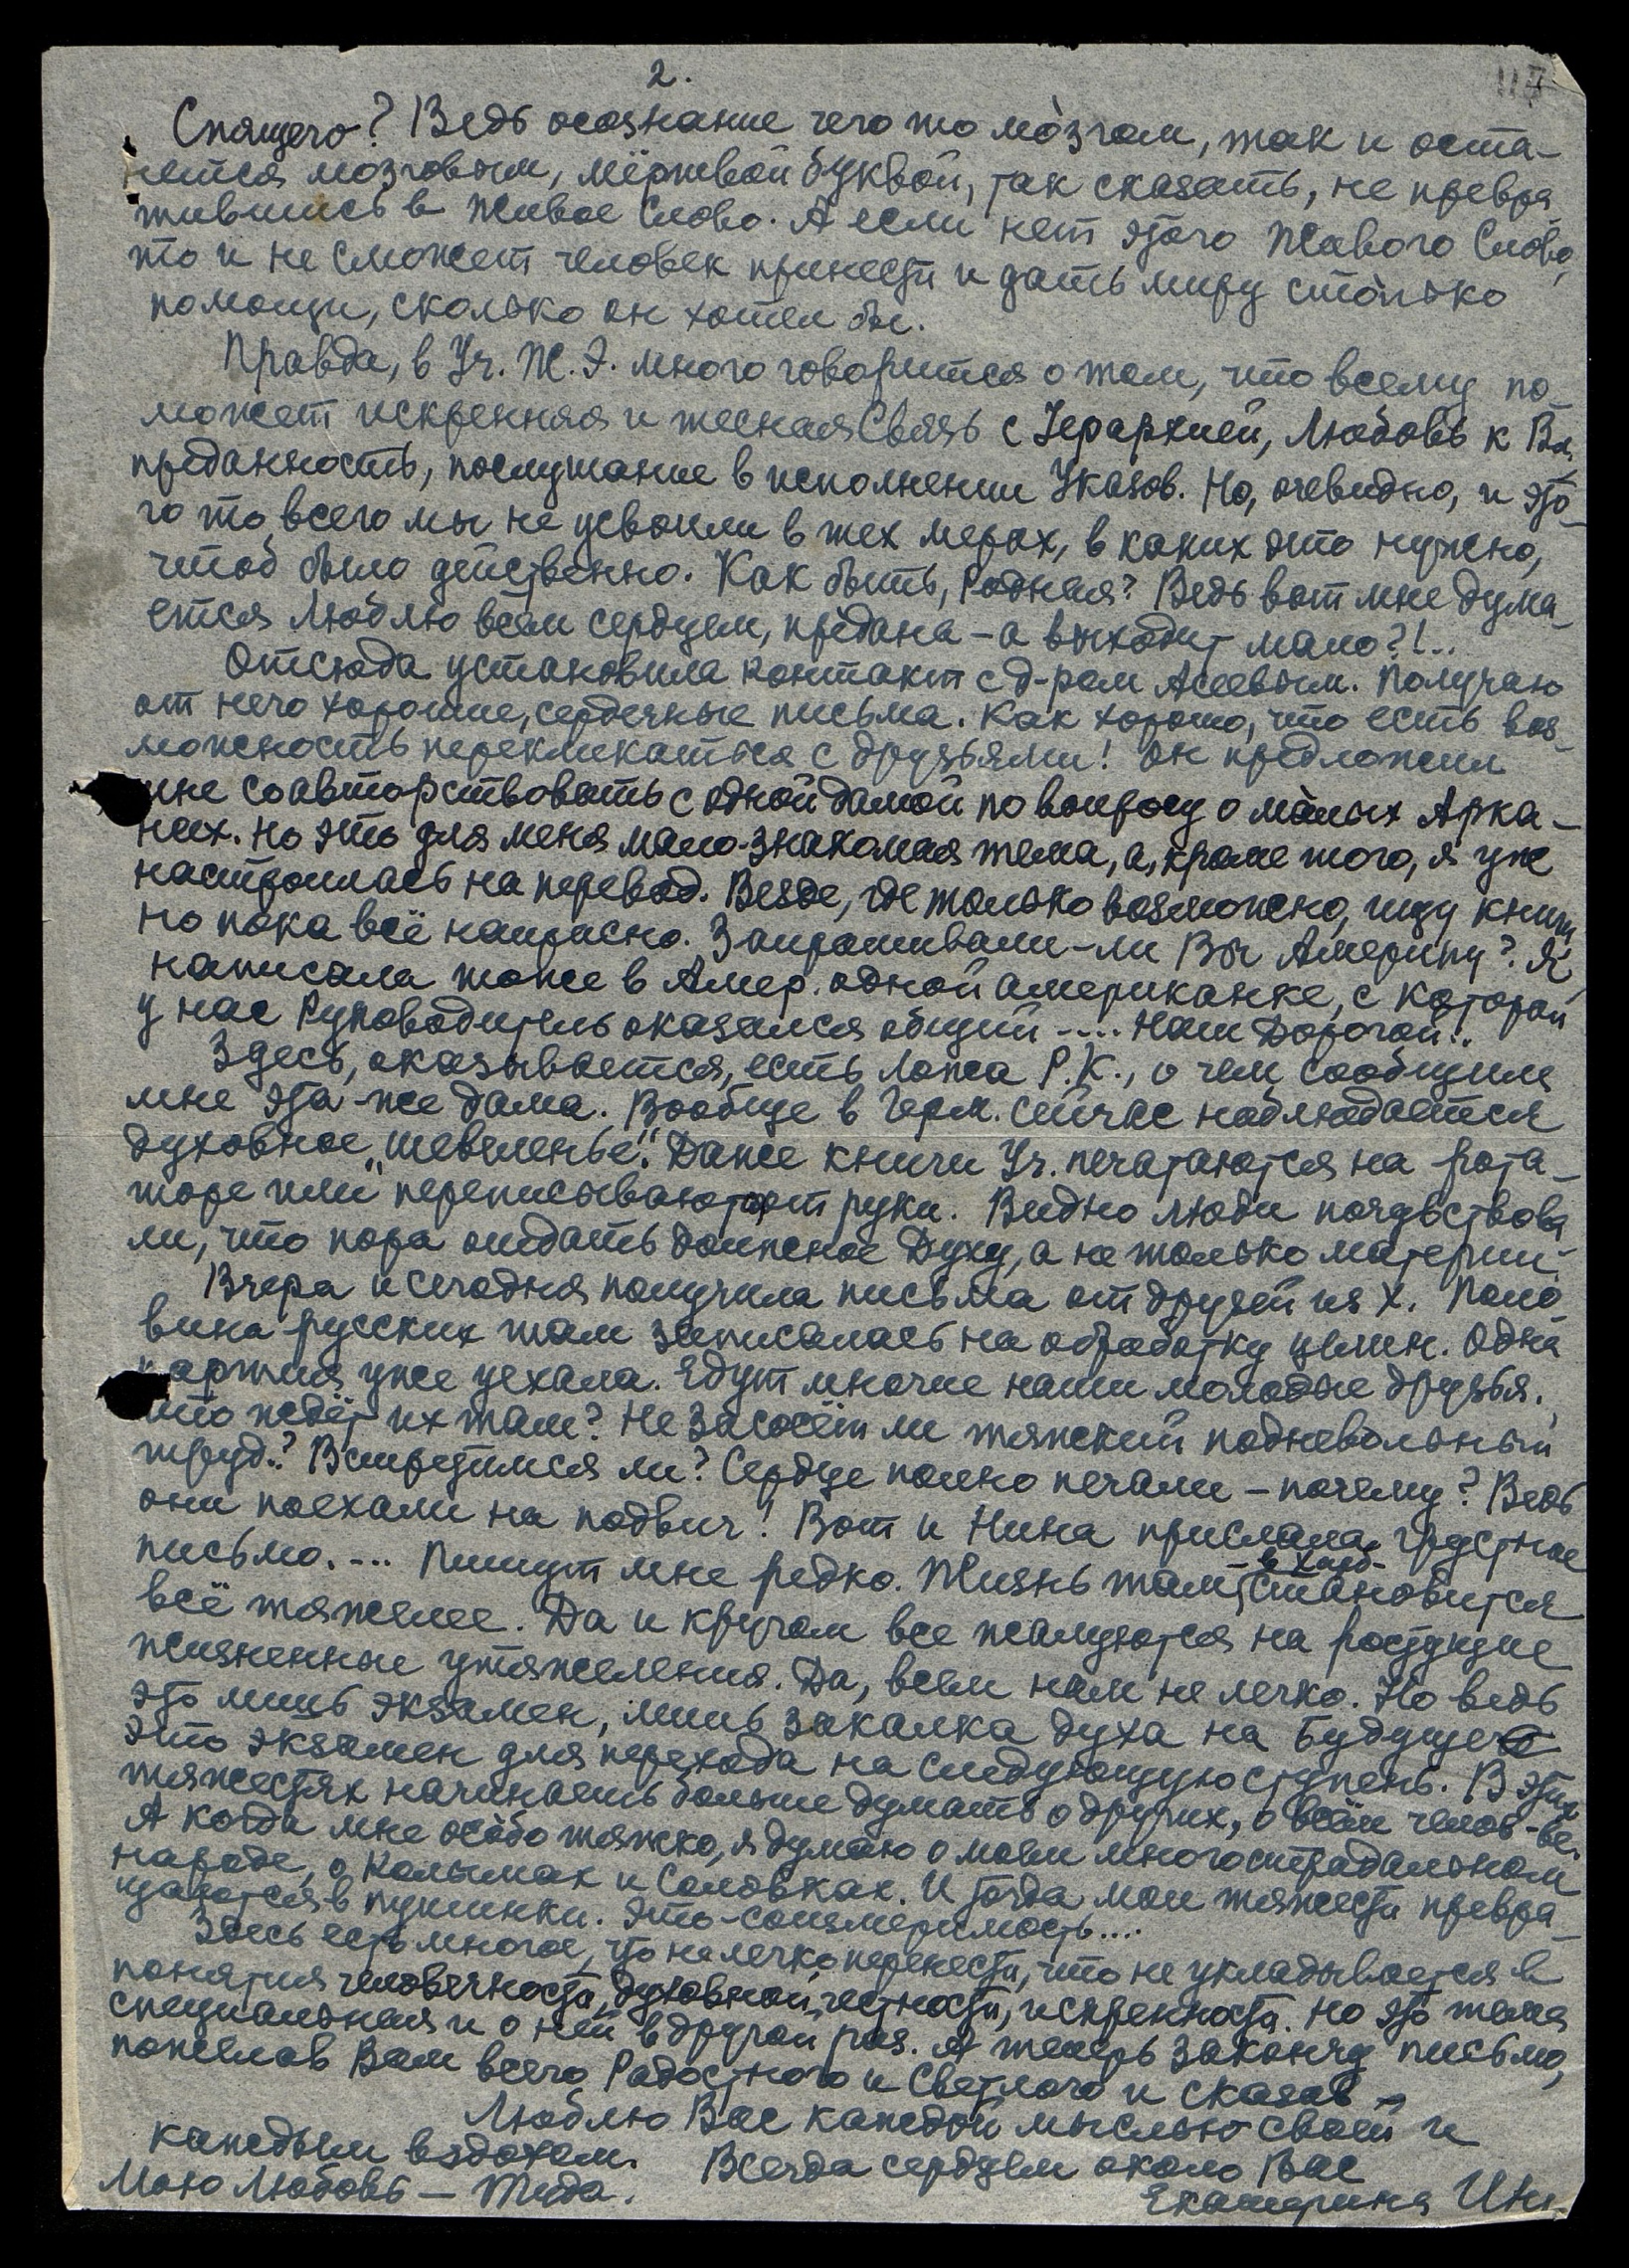 2.
117
Спящего? Ведь осознание чего то мо́згом, так и оста-
нется мозговым, мёртвой буквой, так сказать, не превра
тившись в Живое Слово. А если нет этого Живого Слова,
то и не сможет человек принести и дать миру сто́лько
помощи, сколько он хотел бы.
Правда, в Уч. Ж.Э. много говорится о том, что всему по-
может искренняя и тесная Связь с Иерархией, Любовь к Вл.,
преданность, послушание в исполнении Указов. Но, очевидно, и это-
го то, всего мы не усвоили в тех мерах, в каких это нужно,
чтоб было действенно. Как быть, Родная? Ведь вот мне дума-
ется люблю всем сердцем, предана – а выходит мало?!..
Отсюда установила контакт с д-ром Асеевым. Получаю
от него хорошие, сердечные письма. Как хорошо, что есть воз-
можность перекликаться с друзьями! Он предложил
мне соавторствовать с одной дамой по вопросу о ма́лых Арка-
нах. Но это для меня мало-знакомая тема, а, кроме того, я уже
настроилась на перевод. Везде, где только возможно, ищу книги,
но пока всё напрасно. Запрашивали-ли Вы Америку? Я
написала тоже в Амер. одной американке, с которой
у нас Руководитель оказался общий .... Наш Дорогой!.
Здесь, оказывается, есть ложа Р.К., о чем сообщила
мне эта-же дама. Вообще в Герм. сейчас наблюдается
духовное „шевеленье“. Даже книги Уч. печатаются на рота-
торе или переписывают от руки. Видно люди почувствова
ли, что пора отдать должное Духу, а не только материи.
Вчера и сегодня получила письма от друзей из Х. Поло-
вина русских там записалась на обработку целин. Одна
партия уже уехала. Едут многие наши молодые друзья.
Что ждёт их там? Не засосёт ли тяжский подневольный
труд.? Встретимся ли? Сердце полно печали – почему? Ведь
они поехали на подвиг! Вот и Нина прислала грустное
письмо. ... Пишут мне редко. Жизнь там -в Харб- становится
всё тяжелее. Да и кругом все жалуются на растущие
жизненные утяжеления. Да, всем нам не легко. Но ведь
это лишь экзамен, лишь закалка духа на будущее
это экзамен для перехода на следующую ступень. В этих
тяжестях начинаешь больше думать о других, о всём челов-ве.
А когда мне особо тяжко, я думаю о моём многострадальном
народе, о Колымах и Соловках. И тогда мои тяжести превра-
щаются в пушинки. Это – соизмеримость....
Здесь есть многое, что нелегко перенести, что не укладывается в
понятия человечности, духовной честности, искренности. Но это тема
специальная и о ней в другой раз. А теперь закончу письмо,
пожелав Вам всего Радостного и Светлого и сказав –
Люблю Вас каждой мыслью своей и
каждым вздохом. Всегда сердцем около Вас
Мою Любовь – Туда. Екатерина Инг.